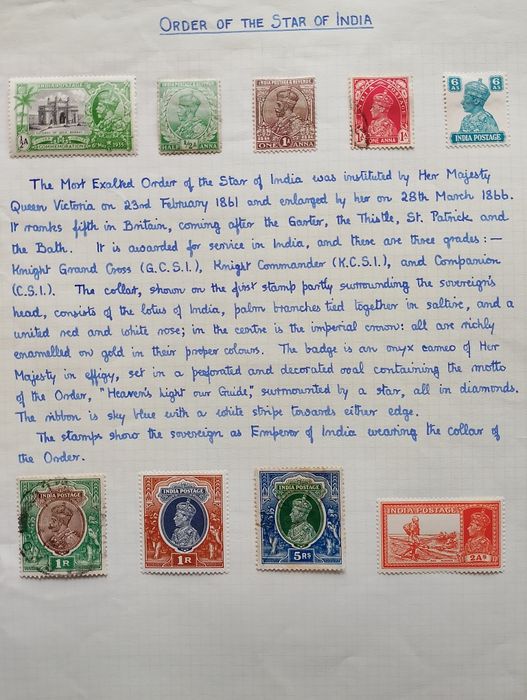 ORDER OF THE STAR OF INDIA
INDIA POSTAGE
½A
6th May 1935
HALF ANNA
INDIA POSTAGE & REVENUE
1A
ONE ANNA
1A
ONE ANNA
6 AS
6 AS
INDIA POSTAGE
The Most Exalted Order of the Star of India was instituted by Her Majesty
Queen Victoria on 23rd February 1861 and enlarged by her on 28th March 1866.
It ranks fifth in Britain, coming after the Garter, the Thistle, St. Patrick and
the Bath. It is awarded for service in India, and there are three grades:—
Knight Grand Cross (G.C.S.I.), Knight Commander (K.C.S.I.), and Companion
(C.S.I.). The collar, shown on the first stamp partly surrounding the sovereign's
head, consists of the lotus of India, palm branches tied together in saltire, and a
united red and white rose; in the centre is the imperial crown: all are richly
enamelled on gold in their proper colours. The badge is an onyx cameo of Her
Majesty in effigy, set in a perforated and decorated oval containing the motto
of the Order, "Heaven's Light our Guide," surmounted by a star, all in diamonds.
The ribbon is sky blue with a white stripe towards either edge.
The stamps show the sovereign as Emperor of India wearing the collar of
the Order.
INDIA POSTAGE
1R
INDIA POSTAGE
1R
INDIA POSTAGE
5RS
INDIA POSTAGE
2AS